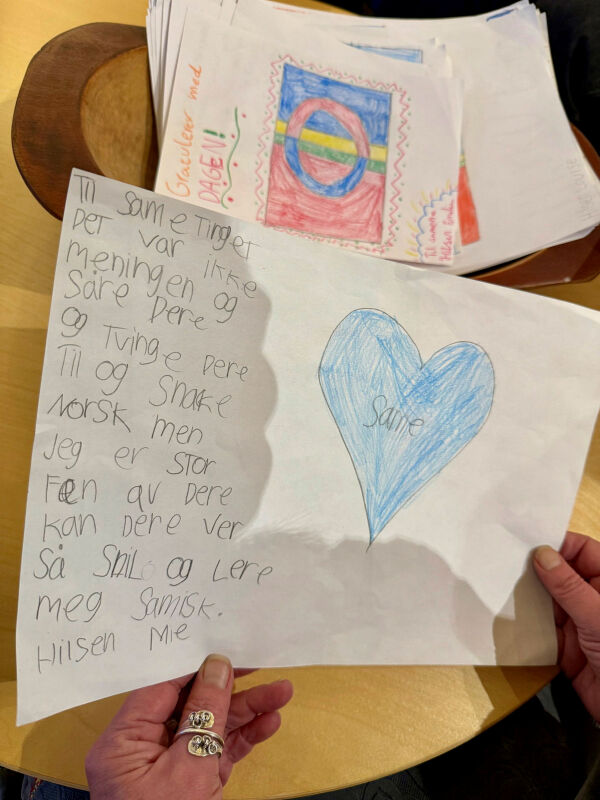 Graculerer med
DAGEN!
Til samene
Hilsen
Til same Tinget
DeT var ikke
meningen og
Såre Dere
og Tvinge Dere
Til og Snake
Norsk men
Jeg er Stor
Fæn av Dere
kan Dere ver
Så Snil og Lere
meg Samisk.
Hilsen Mie
Same